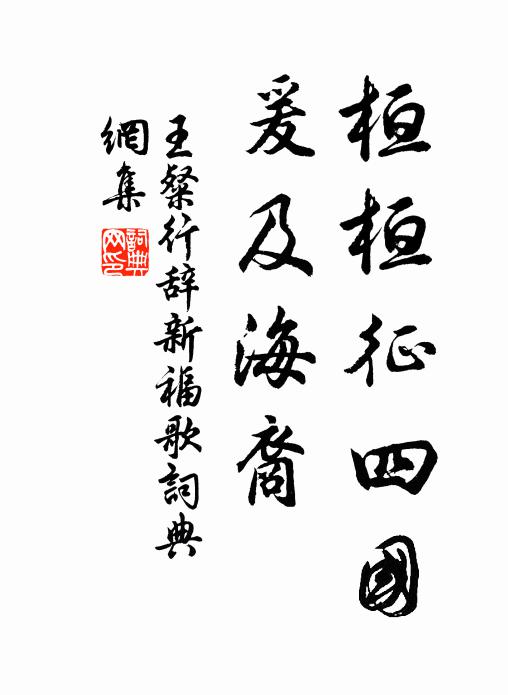 桓桓征四國
爰及海裔
王粲行辞新福歌詞典
網集
詞典网印